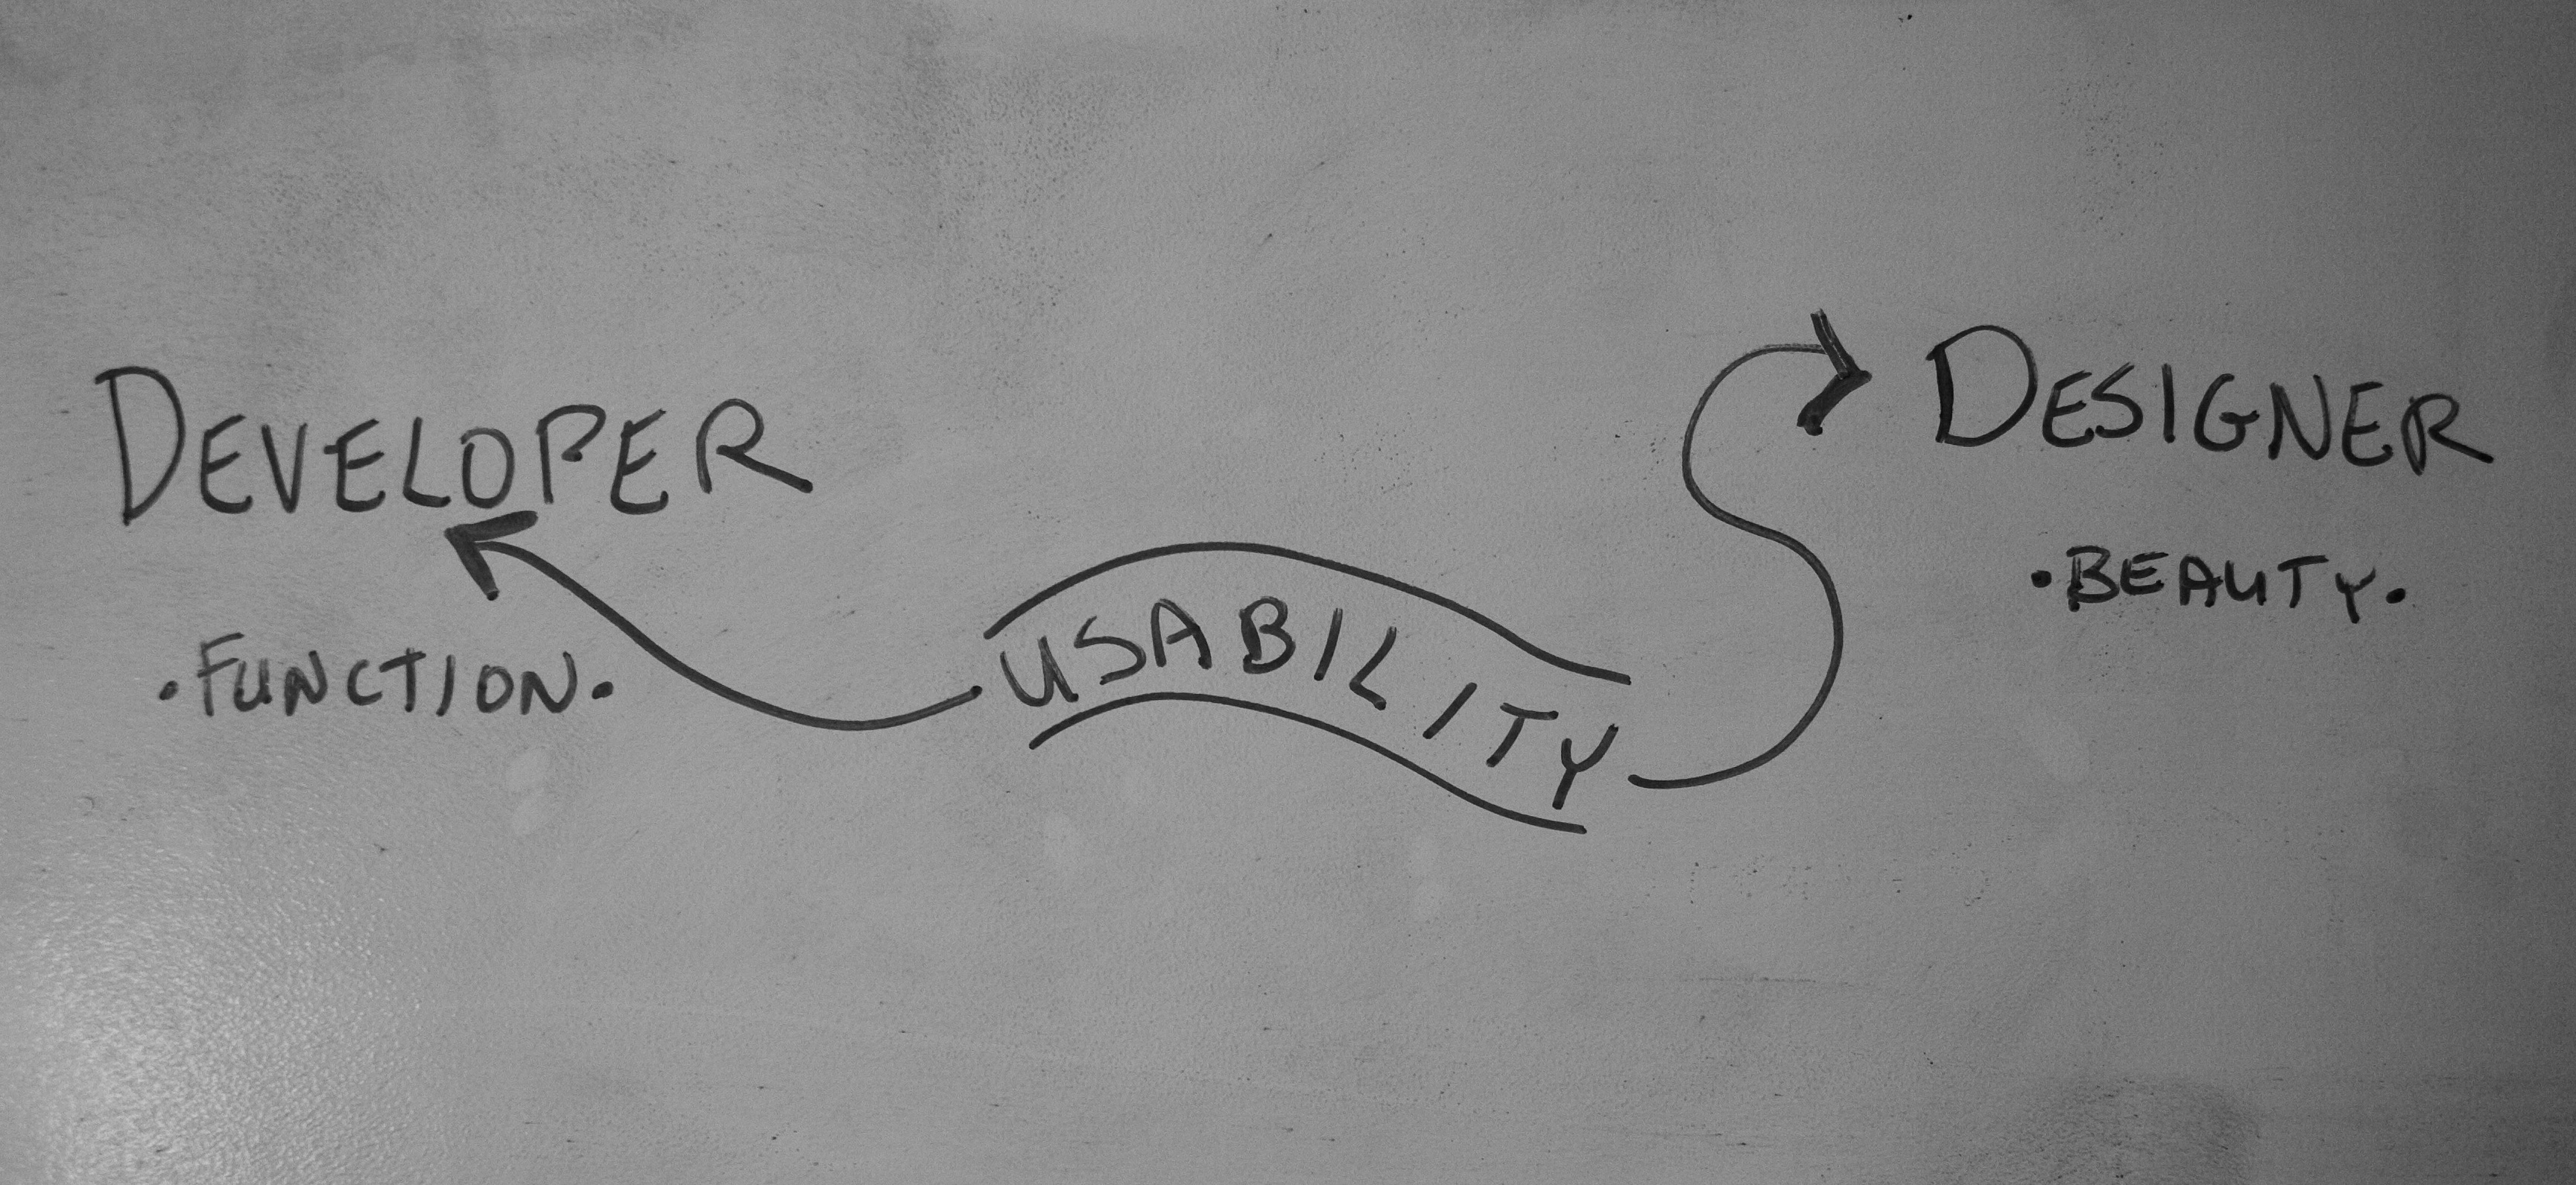 DEVELOPER
• FUNCTION •
USABILITY
DESIGNER
• BEAUTY •